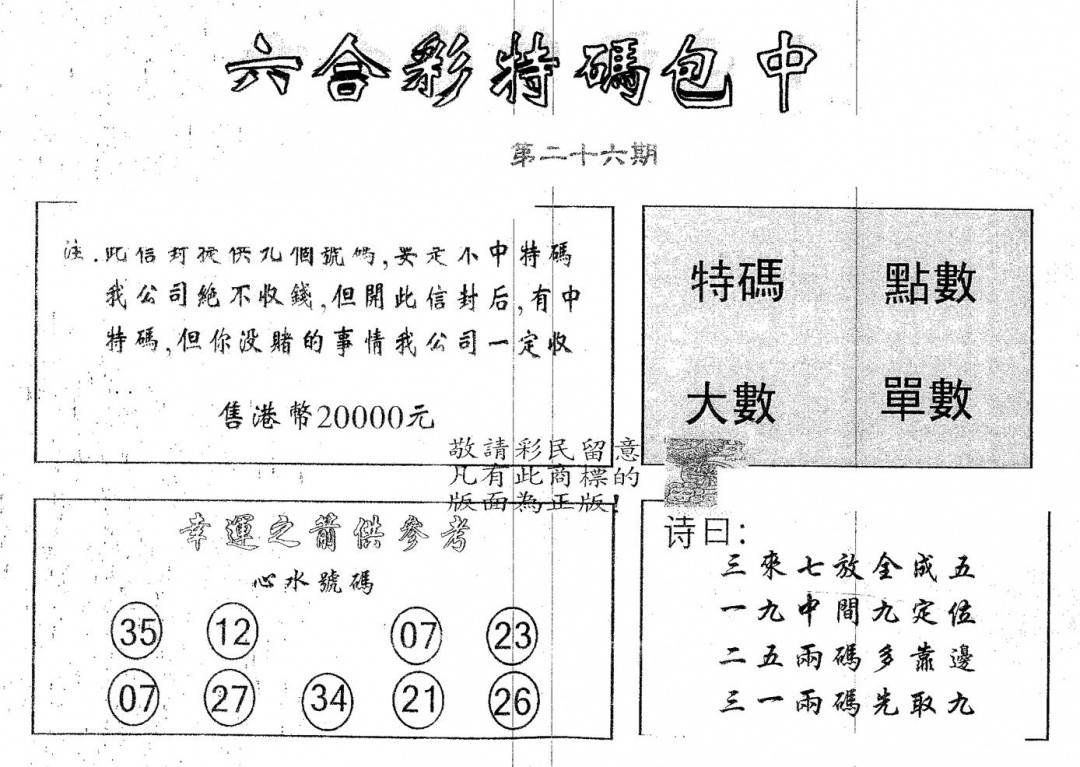 六合彩特碼包中
第二十六期
注.此信封提供九個號碼,要是不中特碼
我公司絕不收錢,但開此信封后,有中
特碼,但你没賭的事情我公司一定收
售港幣20000元
特碼 點數
大數 單數
敬請彩民留意
凡有此商標的
版面為正版!
幸運之箭供參考
心水號碼
35 12 07 23
07 27 34 21 26
诗曰:
三來七放全成五
一九中間九定位
二五兩碼多靠邊
三一兩碼先取九